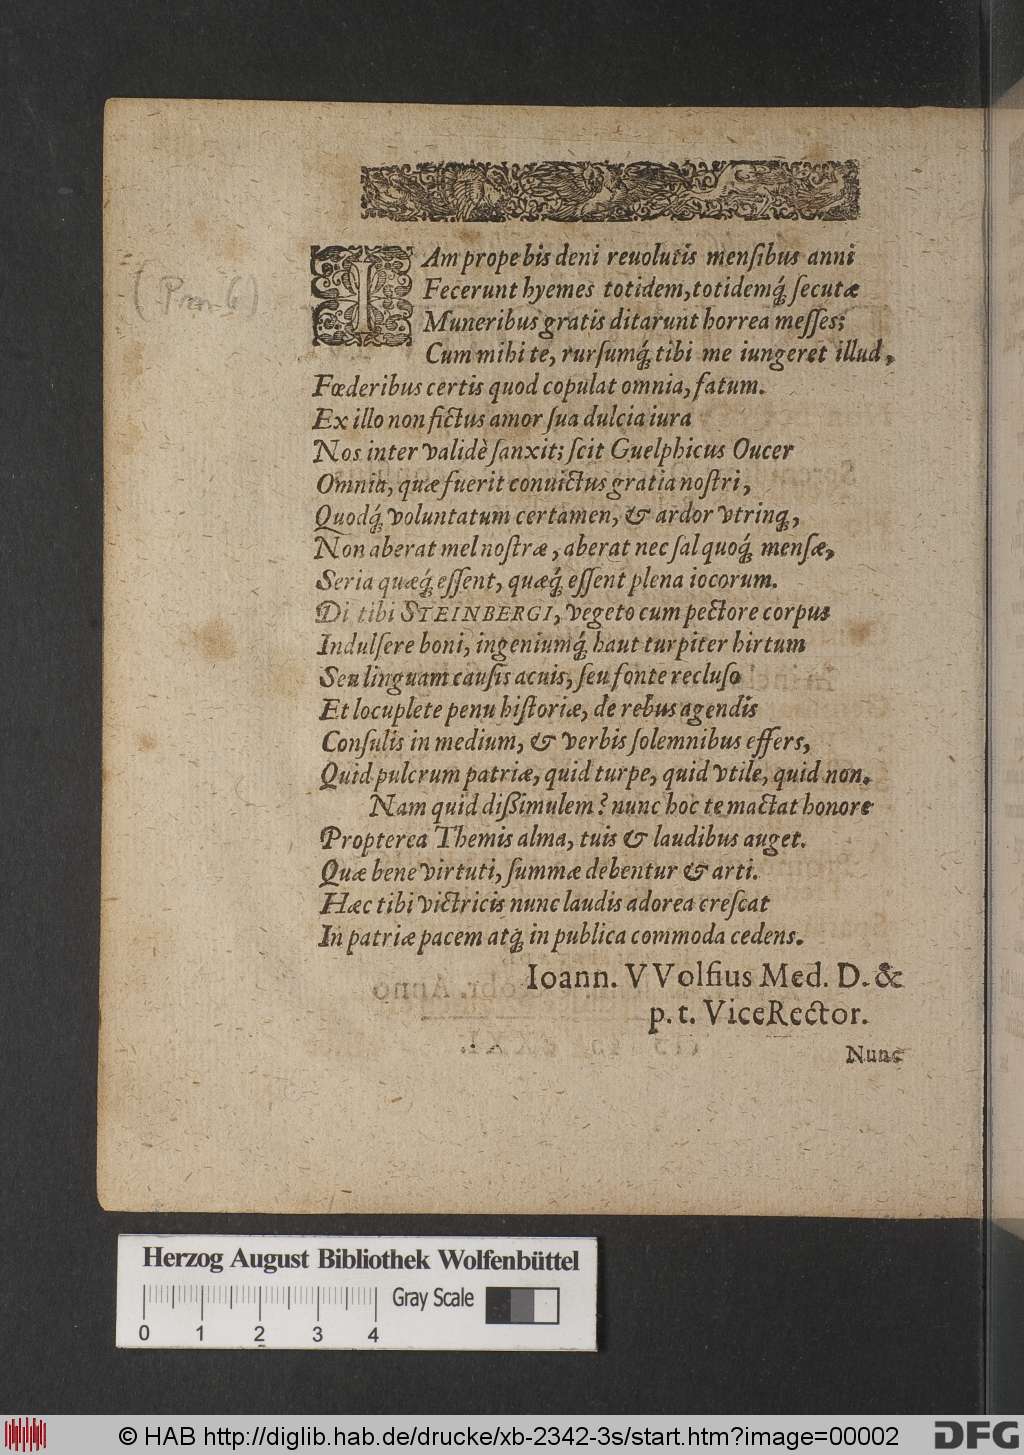 IAm prope bis deni reuolutis mensibus anni
Fecerunt hyemes totidem, totidemq́; secutæ
Muneribus gratis ditarunt horrea messes;
Cum mihi te, rursumq́; tibi me iungeret illud,
Fœderibus certis quod copulat omnia, fatum.
Ex illo non fictus amor sua dulcia iura
Nos inter validè sanxit; scit Guelphicus Oucer
Omnia, quæ fuerit conuictus gratia nostri,
Quodq́; voluntatum certamen, & ardor vtrinq;,
Non aberat mel nostræ, aberat nec sal quoq́; mensæ,
Seria quæq́; essent, quæq́; essent plena iocorum.
Di tibi STEINBERGI, vegeto cum pectore corpus
Indulsere boni, ingeniumq́; haut turpiter hirtum
Seu linguam causis acuis, seu fonte recluso
Et locuplete penu historiæ, de rebus agendis
Consulis in medium, & verbis solemnibus effers,
Quid pulcrum patriæ, quid turpe, quid vtile, quid non.
Nam quid dißimulem? nunc hoc te mactat honore
Propterea Themis alma, tuis & laudibus auget.
Quæ bene virtuti, summæ debentur & arti.
Hæc tibi victricis nunc laudis adorea crescat
In patriæ pacem atq́; in publica commoda cedens.
Ioann. VVolfius Med. D. &
p. t. ViceRector.
Nunc
Herzog August Bibliothek Wolfenbüttel
Gray Scale
0 1 2 3 4
© HAB http://diglib.hab.de/drucke/xb-2342-3s/start.htm?image=00002
DFG